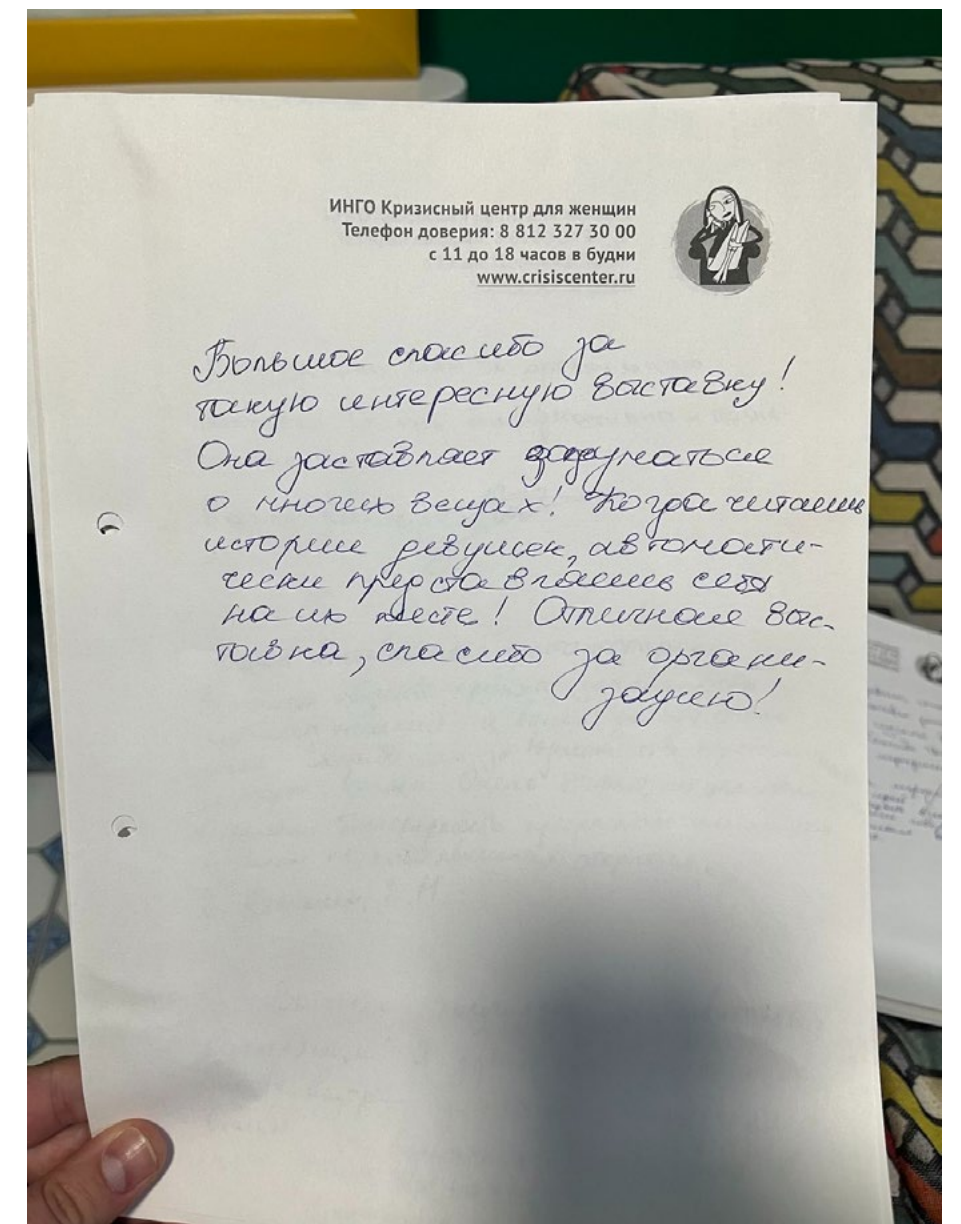 ИНГО Кризисный центр для женщин
Телефон доверия: 8 812 327 30 00
с 11 до 18 часов в будни
www.crisiscenter.ru
Большое спасибо за
такую интересную выставку!
Она заставляет задуматься
о многих вещах! Когда читаешь
истории девушек, автомати-
чески представляешь себя
на их месте! Отличная выс-
тавка, спасибо за органи-
зацию!